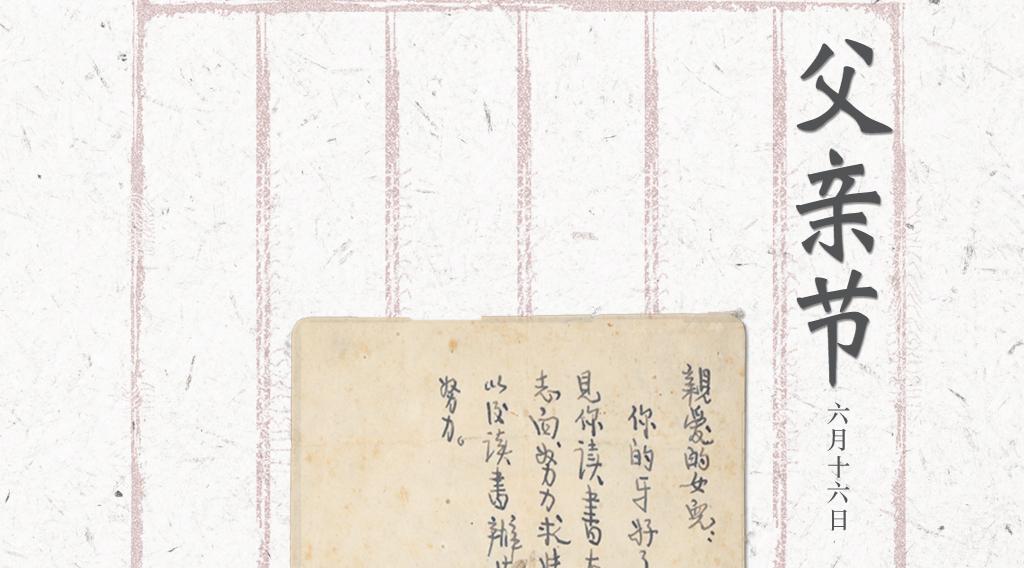 父亲节
六月十六日
親愛的女兒：
你的牙好了
見你读書有
志向、努力求
以后读書
努力。